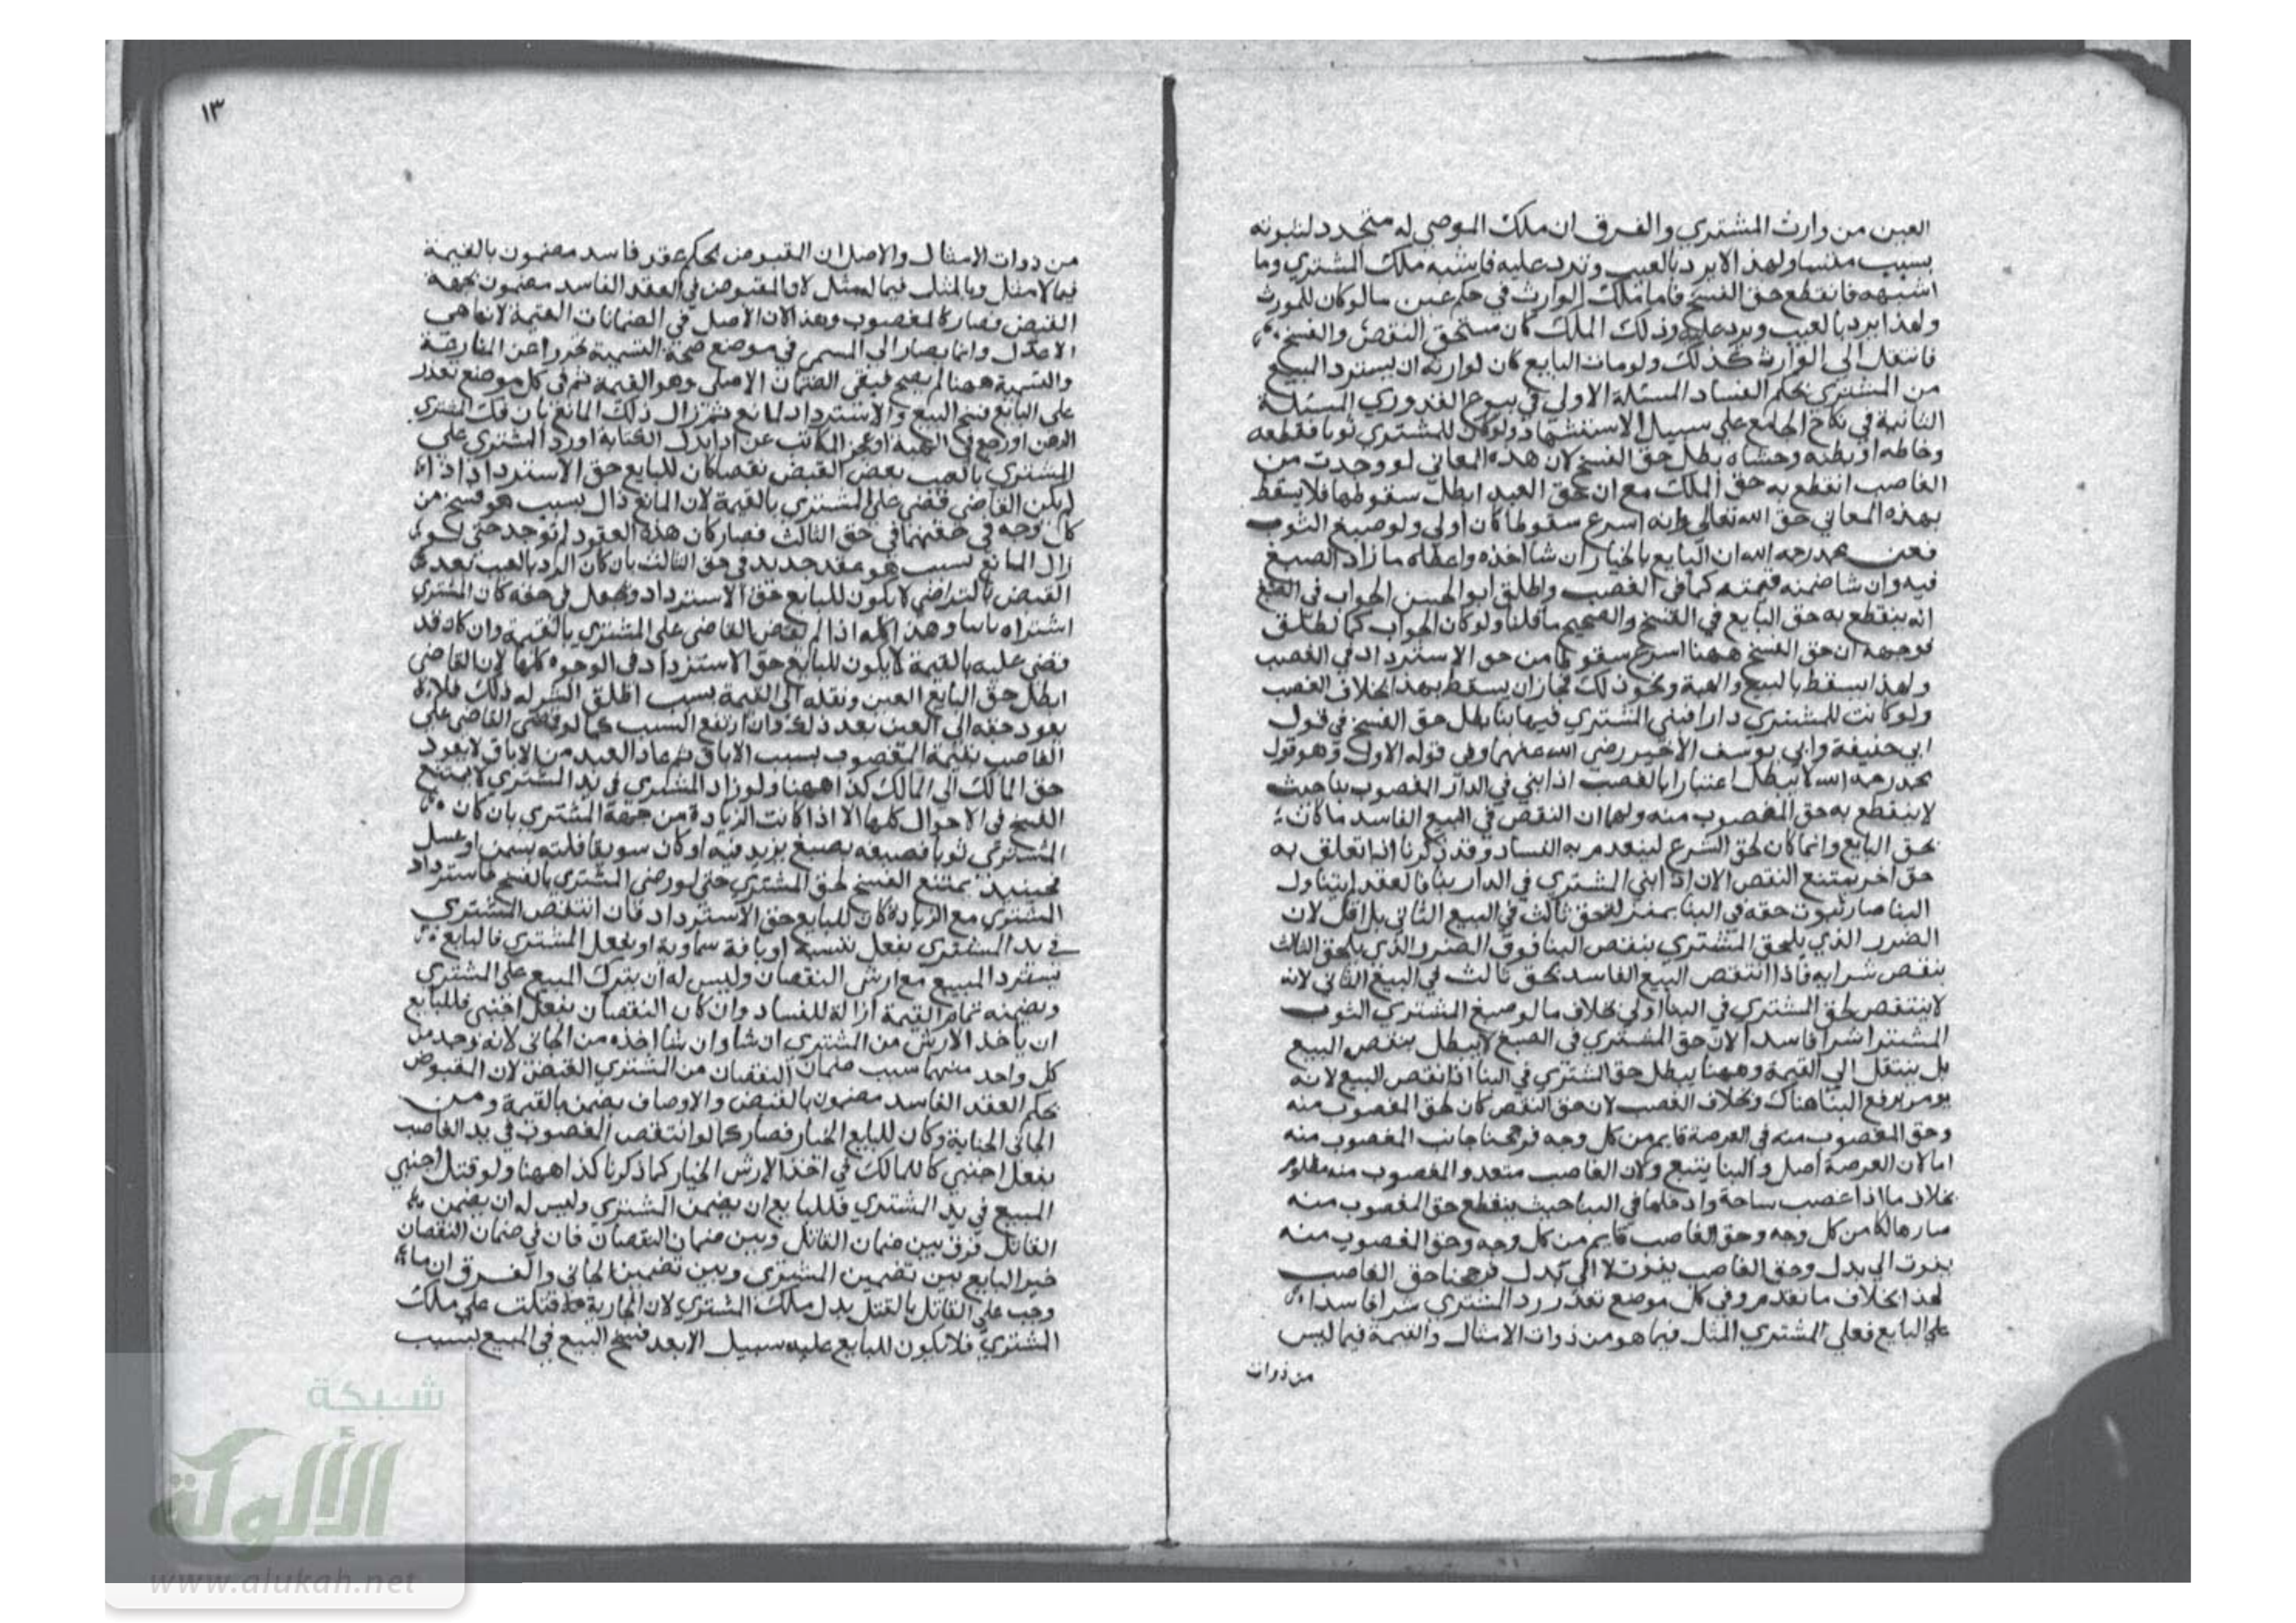 العين من وارث المشتري والفرق ان ملك الموصي له متجدد لثبوته
بسبب مبتدا ولهذا لا يرد بالعيب وترد عليه فاشبه ملك المشتري وما
اشبهه فانقطع حق الفسخ فاما ملك الوارث في حكم عين مالو كان للمورث
ولهذا يرد بالعيب ويرد عليه وذلك الملك كان مستحق النقض والفسخ
فانتقل الي الوارث كذلك ولو مات البايع كان لوارثه ان يسترد المبيع
من المشتري بحكم الفساد المسئلة الاولي في بيوع القدوري المسئلة
الثانية في نكاح الجامع علي سبيل الاستشهاد ولو كان للمشتري ثوبا فقطعه
وخاطه او بطنه وحشاه بطل حق الفسخ لان هذه المعاني لو وجدت من
الغاصب انقطع به حق الملك مع ان حق العبد ابطا سقوطها فلا يسقط
بهذه المعاني حق الله تعالي وانه اسرع سقوطا كان اولي ولو صبغ الثوب
فعن محمد رحمه الله ان البايع بالخيار ان شا اخذه واعطاه ما زاد الصبغ
فيه وان شا ضمنه قيمته كما في الغصب واطلق ابو الحسن الجواب في الصبغ
انه ينقطع به حق البايع في الفسخ والصحيح ما قلنا ولو كان الجواب كما نطلق
فوجهه ان حق الفسخ ههنا اسرع سقوطا من حق الاسترداد في الغصب
ولهذا يسقط بالبيع والهبة ونحو ذلك فجاز ان يسقط بهذا بخلاف الغصب
ولو كانت للمشتري دارا فبني المشتري فيها بنا بطل حق الفسخ في قول
ابي حنيفة وابي يوسف الاخير رضي الله عنهما وفي قوله الاول وهو قول
محمد رحمه الله لا يبطل اعتبارا بالغصب اذا بني في الدار المغصوب بنا حيث
لا ينقطع به حق المغصوب منه ولهما ان النقض في البيع الفاسد ما كان
بحق البايع وانما كان لحق الشرع لينعدم به الفساد وقد ذكرنا اذا تعلق به
حق اخر يمتنع النقض الا ان اذا بني المشتري في الدار بنا فالعقد لم يتناول
البنا صار ثبوت حقه في البنا بمنزلة حق ثالث في البيع الثاني بل اقل لان
الضرر الذي يلحق المشتري بنقض البنا فوق الضرر الذي يلحق الثالث
بنقض شرايه فاذا انتقض البيع الفاسد بحق ثالث في البيع الثاني لانه
لا ينتقض لحق المشتري في البنا اولي بخلاف ما لو صبغ المشتري الثوب
المشترا شرا فاسدا لان حق المشتري في الصبغ لا يبطل بنقض البيع
بل ينتقل الي القيمة وههنا يبطل حق المشتري في البنا اذا نقض البيع لانه
يومر برفع البنا هناك وبخلاف الغصب لان حق النقض كان لحق المغصوب منه
وحق المغصوب منه في العرصة قايم من كل وجه فرجحنا جانب المغصوب منه
اما لان العرصة اصل والبنا يتبع ولان الغاصب متعد والمغصوب منه مظلوم
بخلاف ما اذا غصب ساحة وادخلها في البنا حيث ينقطع حق المغصوب منه
صار هالكا من كل وجه وحق الغاصب قايم من كل وجه وحق المغصوب منه
يفوت الي بدل وحق الغاصب يفوت لا الي بدل فرجحنا حق الغاصب
لهذا بخلاف ما تقدم وفي كل موضع تعذر رد المشتري شرا فاسدا
علي البايع فعلي المشتري المثل فيما هو من ذوات الامثال والقيمة فيما ليس
من ذوات
١٣
من ذوات الامثال والاصل ان المقبوض بحكم عقد فاسد مضمون بالقيمة
فيما لا مثل وبالمثل فيما له مثل لان المقبوض في العقد الفاسد مضمون بجهة
القبض فصار كالمغصوب وهذا لان الاصل في الضمانات القيمة لانها هي
الاعدل وانما يصار الي المسمي في موضع صحة التسمية تحرزا عن المنازعة
والتسمية ههنا لم يصح فبقي الضمان الاصلي وهو القيمة ثم في كل موضع تعذر
علي البائع فسخ البيع والاسترداد لمانع ثم زال ذلك المانع بان فك المشتري
الرهن او رجع في الهبة او عجز المكاتب عن ادا بدل الكتابة او رد المشتري علي
المشتري بالعيب بعض القبض بقضا كان للبايع حق الاسترداد اذا
لم يكن القاضي قضي علي المشتري بالقيمة لان المانع زال بسبب هو فسخ من
كل وجه في حقهما في حق الثالث فصار كان هذه العقود لم توجد حتي لو
زال المانع بسبب هو عقد جديد في حق الثالث بان كان الرد بالعيب بعد
القبض بالتراضي لا يكون للبايع حق الاسترداد ويجعل في حقه كان المشتري
اشتراه ثانيا وهذا كله اذا لم يقض القاضي علي المشتري بالقيمة وان كان قد
قضي عليه بالقيمة لا يكون للبايع حق الاسترداد في الوجوه كلها لان القاضي
ابطل حق البايع العين ونقله الي القيمة بسبب اطلق الشرع له ذلك فلا
يعود حقه الي العين بعد ذلك وان ارتفع السبب كما لو قضي القاضي علي
الغاصب بقيمة المغصوب بسبب الاباق ثم عاد العبد من الاباق لا يعود
حق المالك الي المالك كذا ههنا ولو زاد المشتري في يد المشتري لا يمتنع
الفسخ في الاحوال كلها الا اذا كانت الزيادة من جهة المشتري بان كان
المشتري ثوبا فصبغه بصبغ يزيد فيه او كان سويقا فلته بسمن او عسل
فحينيذ يمتنع الفسخ لحق المشتري حتي لو رضي المشتري بالفسخ فاسترداد
المشتري مع الزيادة كان للبايع حق الاسترداد فان انتقض المشتري
في يد المشتري بفعل نفسه او بافة سماوية او بفعل المشتري فالبايع
يسترد المبيع مع ارش النقصان وليس له ان يترك المبيع علي المشتري
ويضمنه تمام القيمة ازالة للفساد وان كان النقصان بفعل اجنبي فللبايع
ان ياخذ الارش من المشتري ان شا وان شا اخذه من الجاني لانه وجد من
كل واحد منهما سبب ضمان النقصان من المشتري القبض لان المقبوض
بحكم العقد الفاسد مضمون بالقبض والاوصاف يضمن بالقيمة ومن
الجاني الجناية وكان للبايع الخيار فصار كما لو انتقص المغصوب في يد الغاصب
بفعل اجنبي كا للمالك في اخذ الارش الخيار كما ذكرنا كذا ههنا ولو قتل اجنبي
المبيع في يد المشتري فللبايع ان يضمن المشتري وليس له ان يضمن
القاتل فرق بين ضمان القاتل وبين ضمان النقصان فان في ضمان النقصان
خير البايع بين تضمين المشتري وبين تضمين الجاني والفرق ان ما
وجب علي القاتل بالقتل بدل ملك المشتري لان الجارية قتلت علي ملك
المشتري فلا يكون للبايع عليه سبيل الا بعد فسخ البيع في المبيع بسبب
شبكة
الألوكة
www.alukah.net